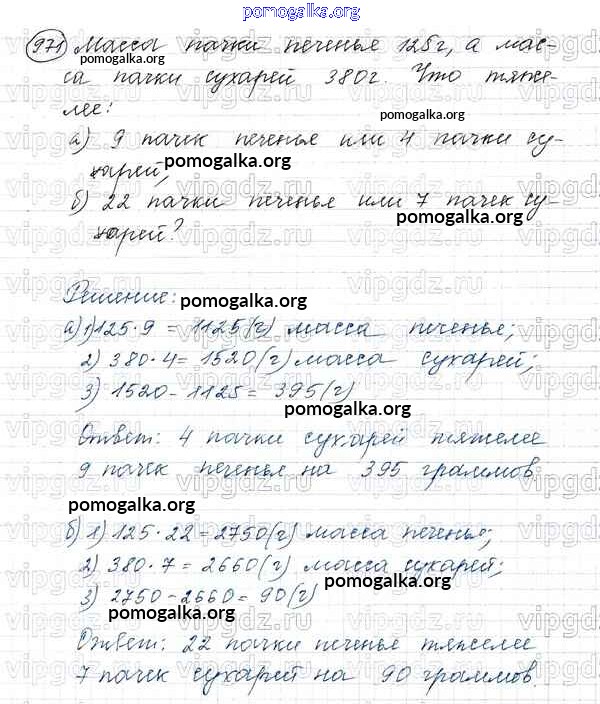 pomogalka.org
971 Масса пачки печенье 125г, а мас-
pomogalka.org
са пачки сухарей 380г. Что тяже-
лее:
pomogalka.org
а) 9 пачек печенье или 4 пачки су-
харей;
pomogalka.org
б) 22 пачки печенье или 7 пачек су-
pomogalka.org
харей?
Решение:
pomogalka.org
а) 1) 125·9 = 1125(г) масса печенье;
2) 380·4 = 1520(г) масса сухарей;
3) 1520-1125= 395(г)
pomogalka.org
Ответ: 4 пачки сухарей тяжелее
9 пачек печенье на 395 граммов.
pomogalka.org
б) 1) 125·22=2750(г) масса печенье;
2) 380·7 = 2660(г) масса сухарей;
pomogalka.org
3) 2750-2660= 90(г)
Ответ: 22 пачки печенье тяжелее
pomogalka.org
7 пачек сухарей на 90 граммов.
vipgdz.ru